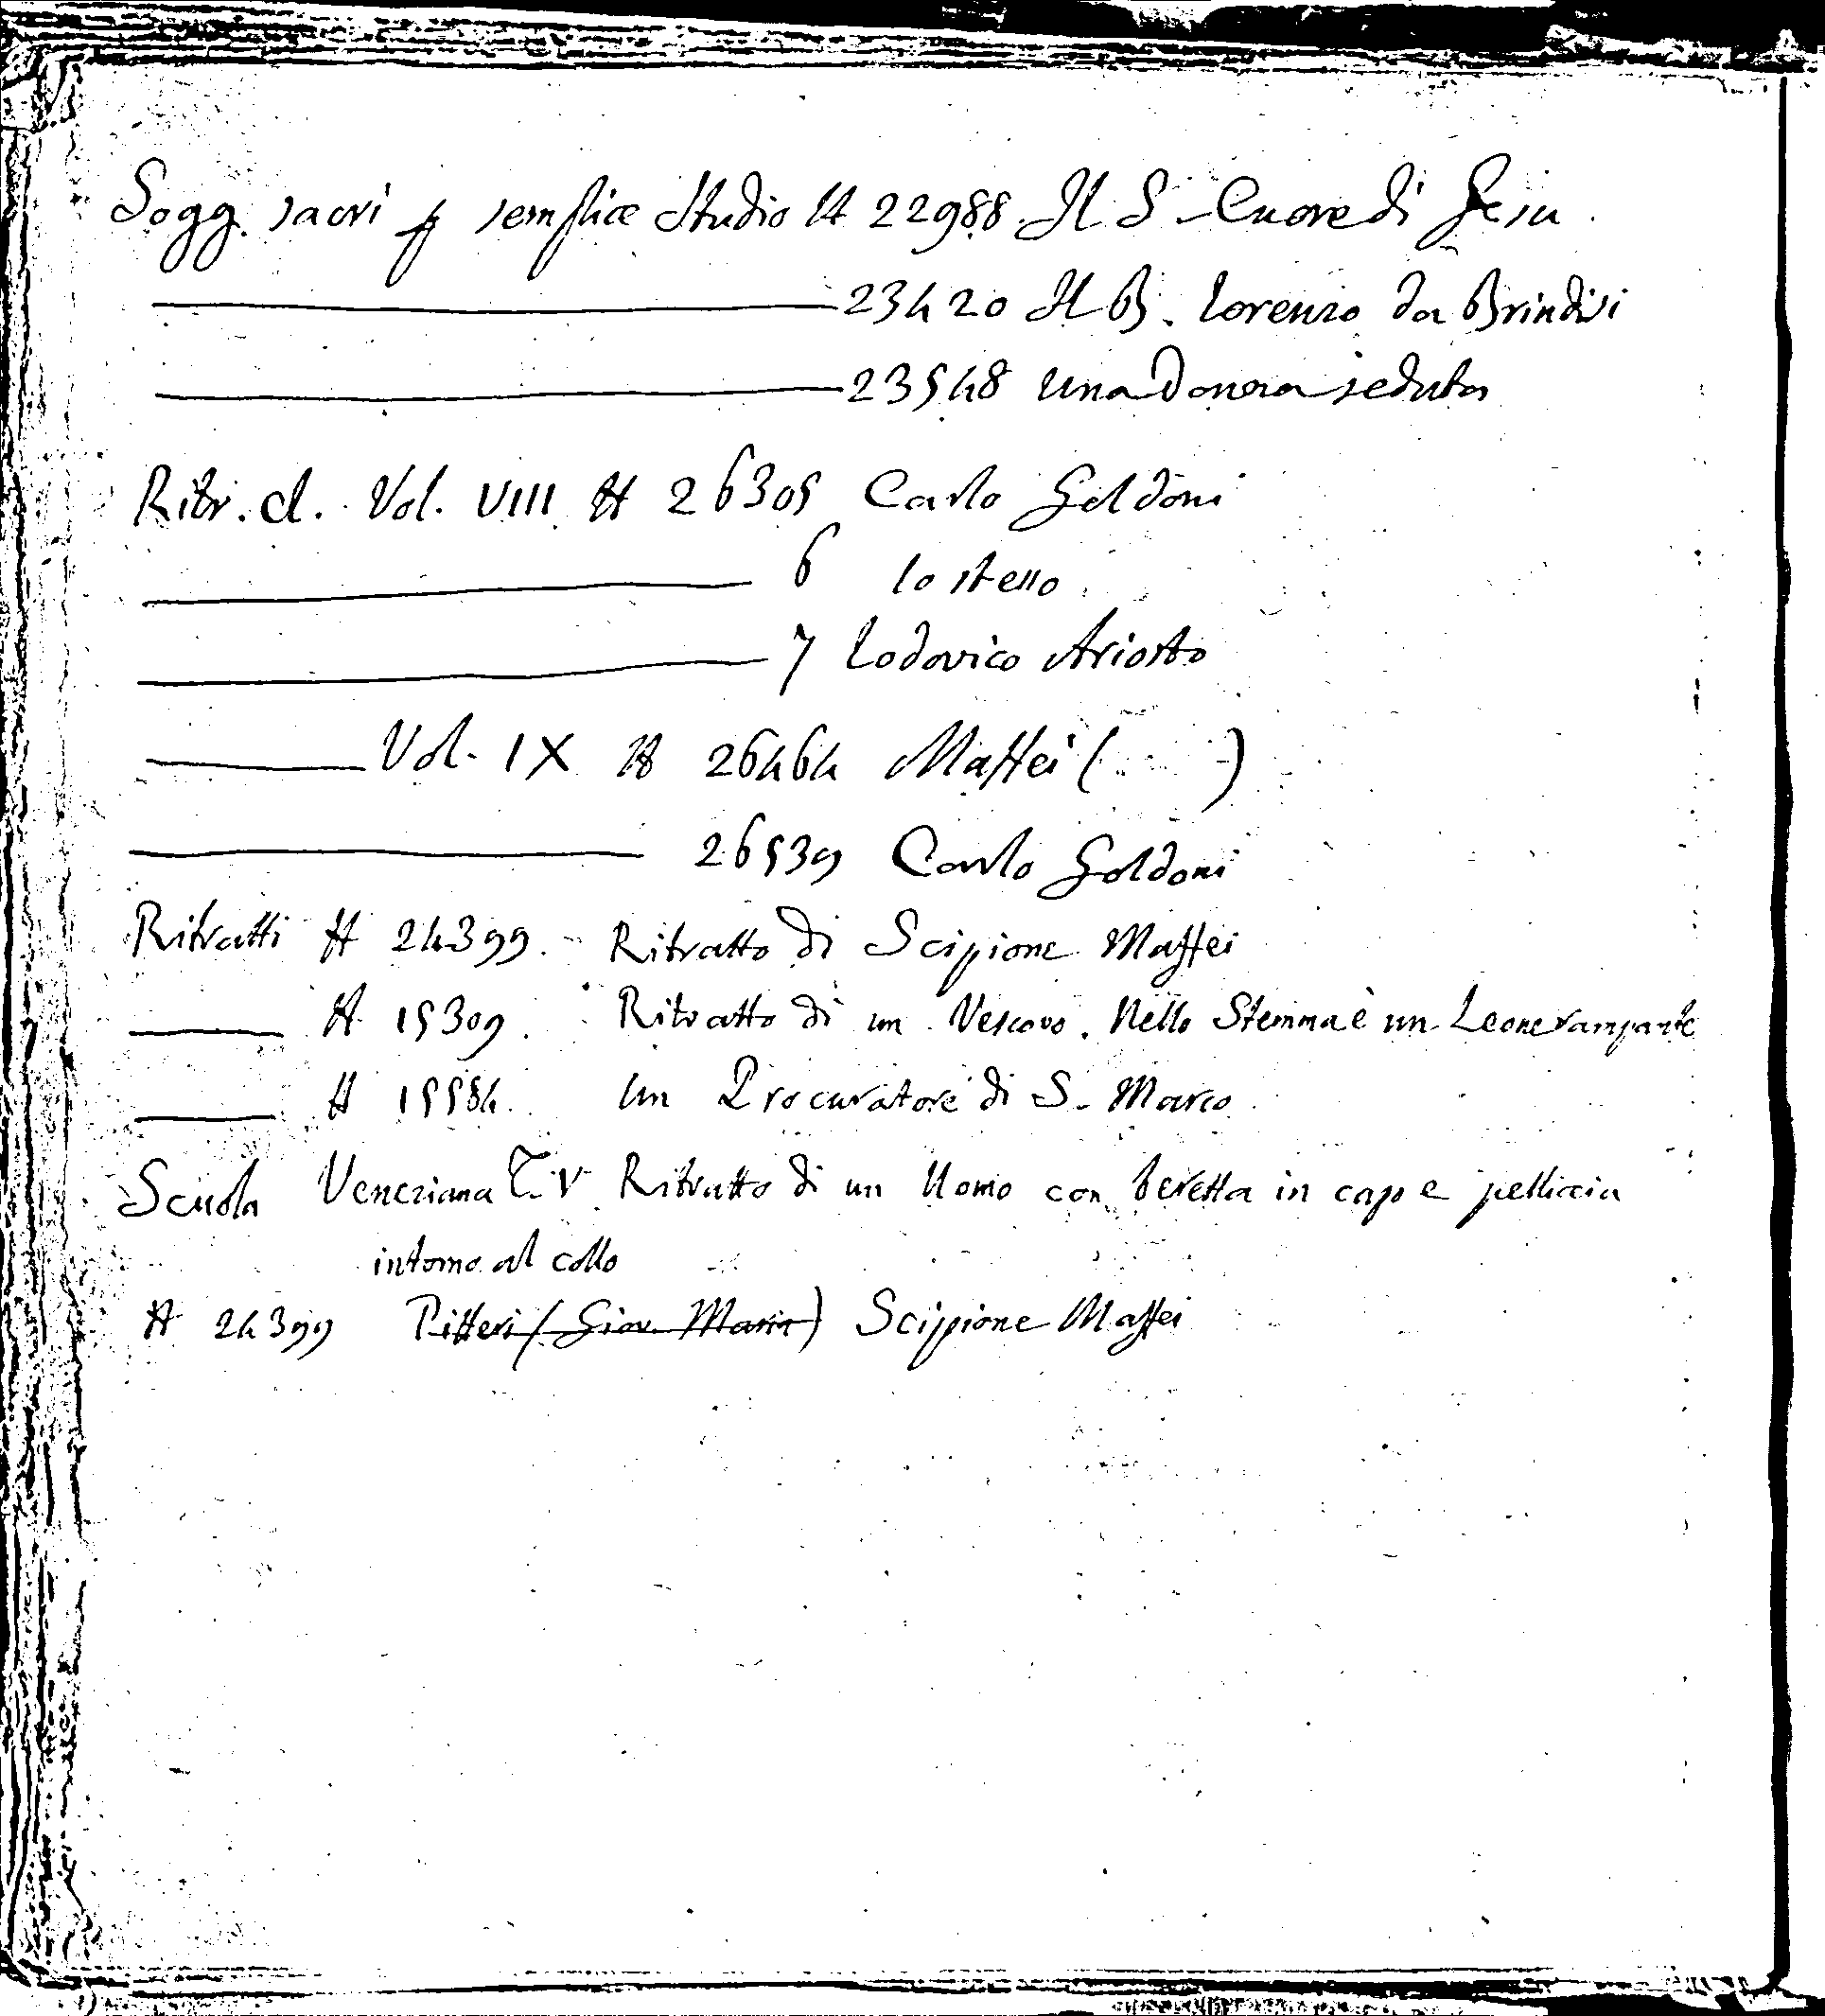 Sogg. sacri p semplice Studio H 22988 Il S. Cuore di Gesu
23420 Il B. Lorenzo da Brindisi
23548 Una Donna seduta
Ritr. cl. Vol. VIII H 26305 Carlo Goldoni
6 lo stesso
7 Lodovico Ariosto
Vol. IX H 26464 Maffei ( )
26539 Carlo Goldoni
Ritratti H 24399. Ritratto di Scipione Maffei
H 15309. Ritratto di un Vescovo. Nello Stemma è un Leone rampante
H 15584. Un Procuratore di S. Marco
Scuola Veneziana T. V Ritratto di un Uomo con beretta in capo e pelliccia
intorno al collo
H 24399 Pitteri (Giov. Maria) Scipione Maffei